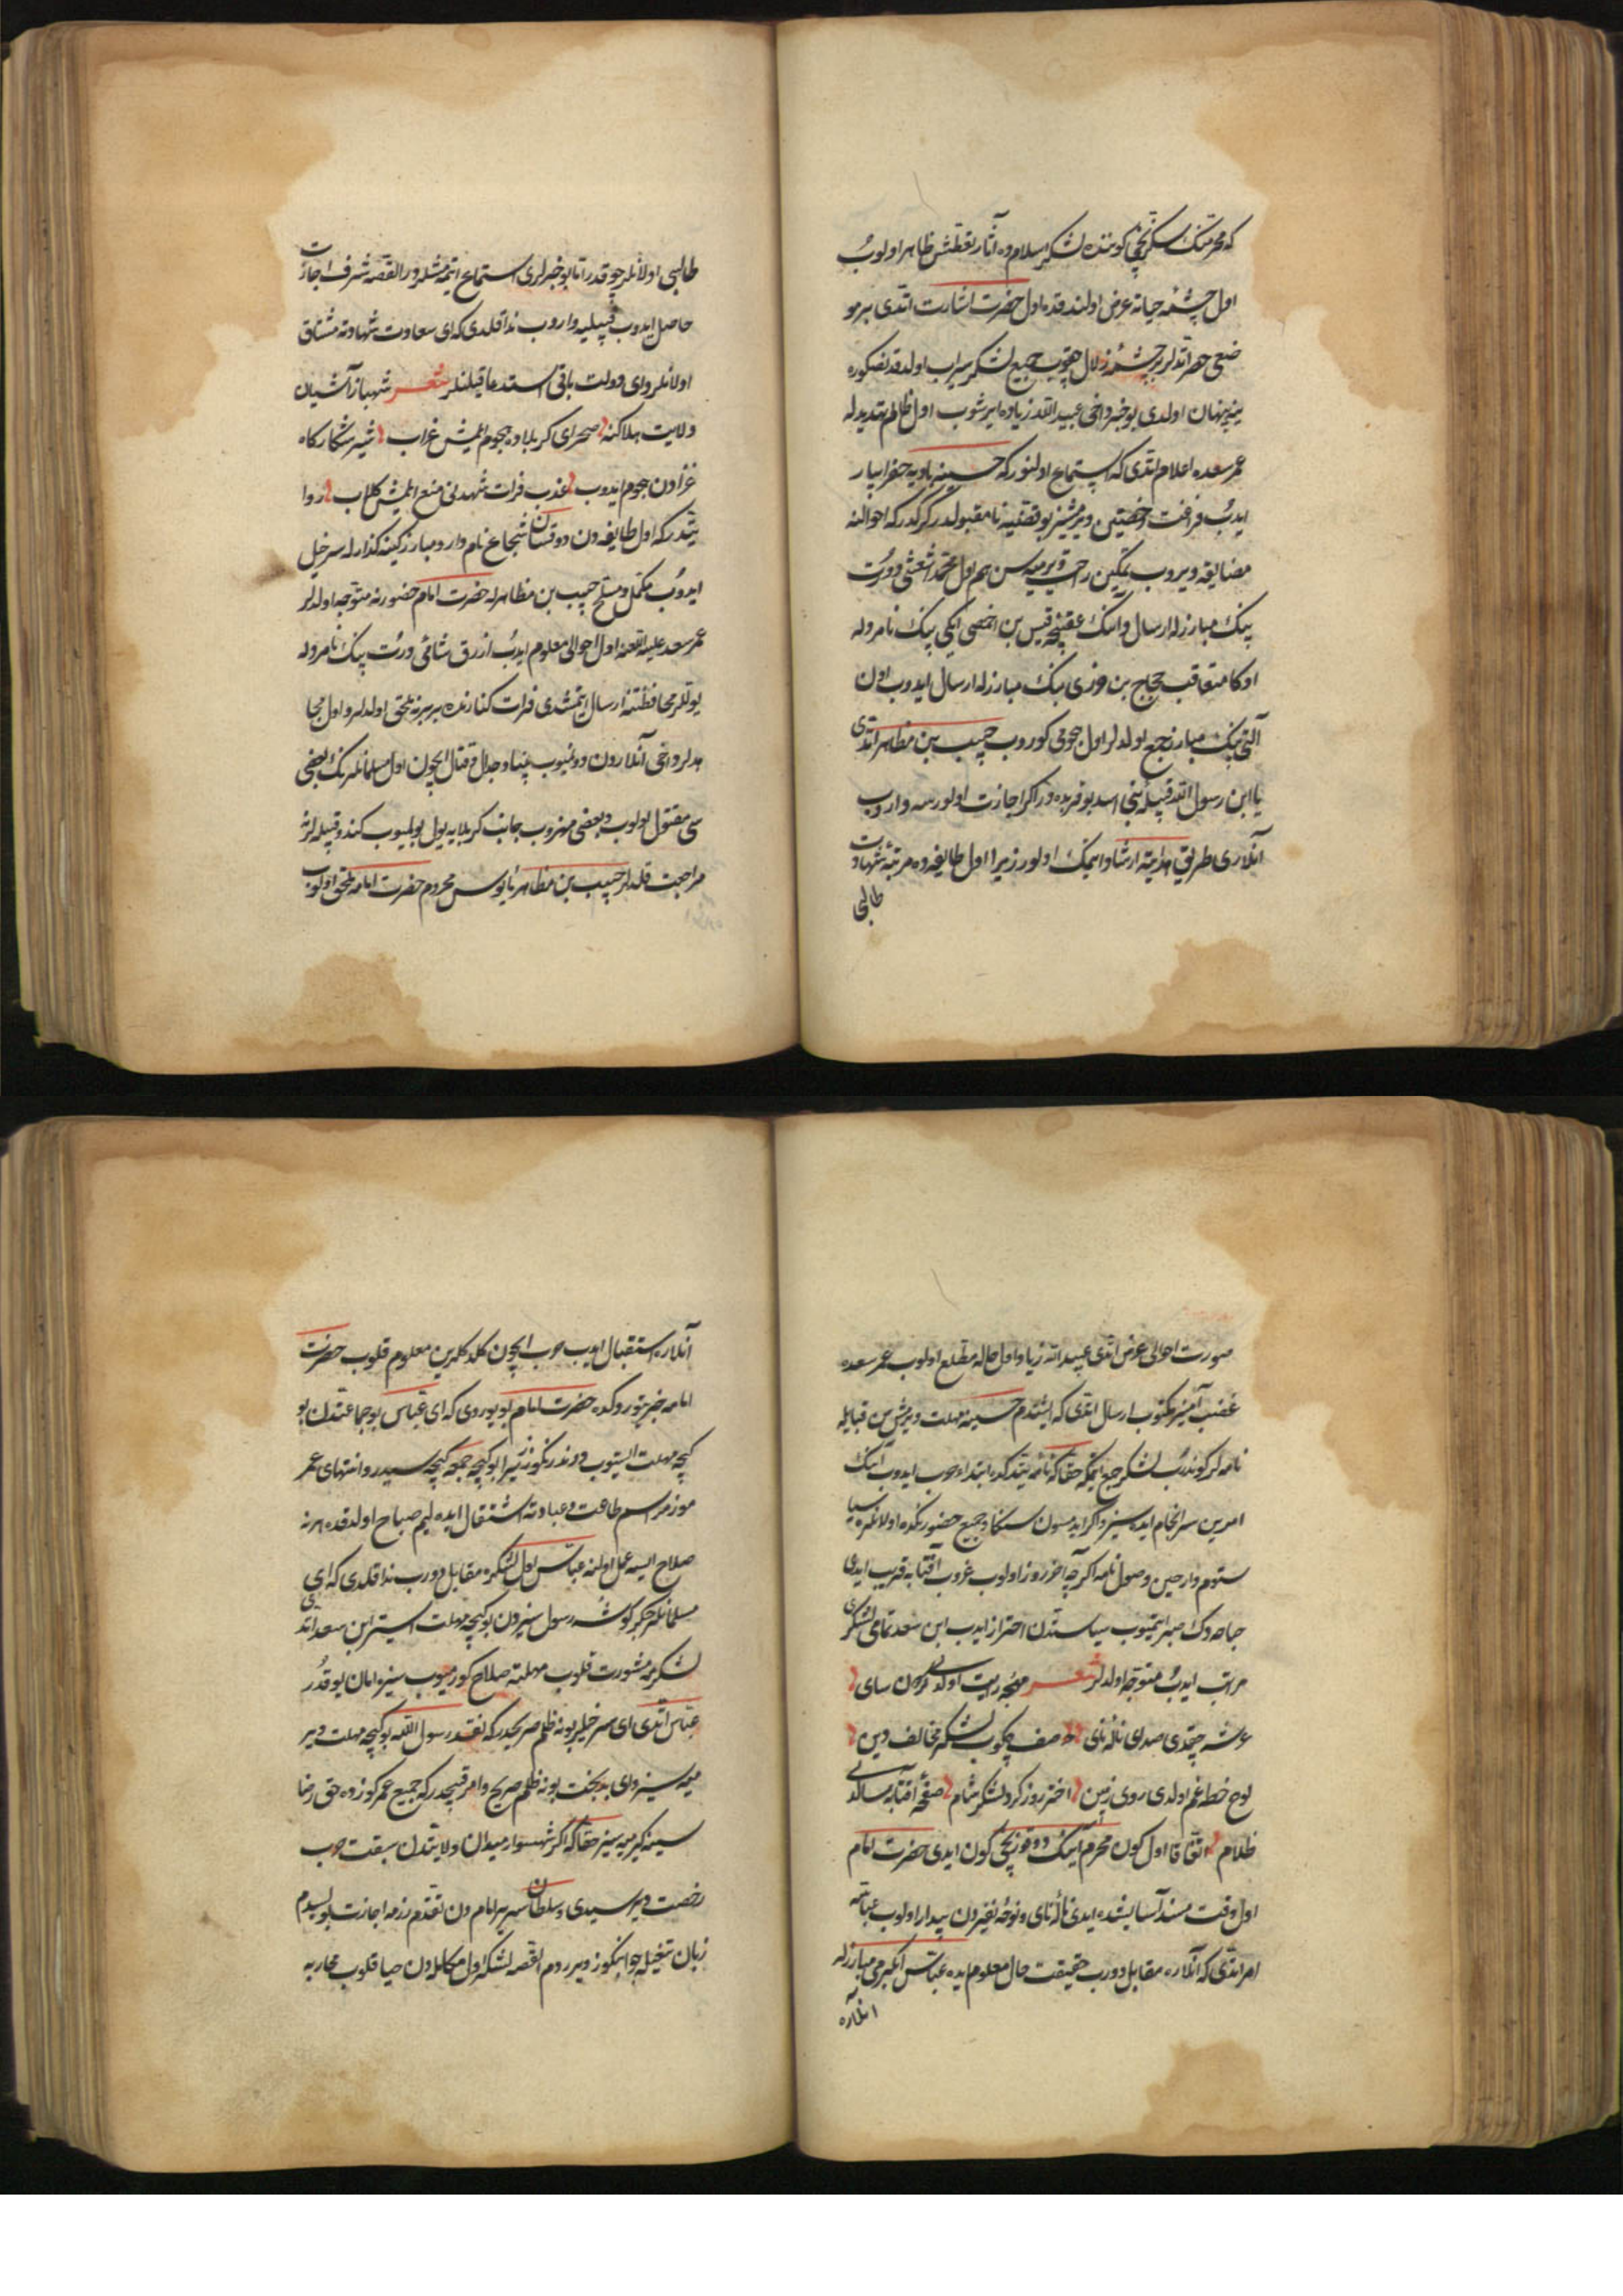 که محرمتك سكزنجی كوننده لشكر اسلامده آثار تعطش ظاهر اولوب
اول چشمه حیاته عرض اولندقده اول حضرت اشارت اتدی بر مو
ضعی حفر اتدلر بر چشمه زلال چقوب جمیع لشكر سیراب اولدقدنصكره
ینه پنهان اولدی بو خبر داخی عبید الله زیاده ایرشوب اول ظالم تهدیدله
عمر سعده اعلام اتدی كه استماع اولنور كه حسینه بادیه حفر ابیار
ایدوب فراغت رخصتین ویرمشسز بو قضیه نامقبولدر كركدر كه احوالنه
مضایقه ویروب تمكین راحت ویرمیه سن هم اول محمد اشعثی دورت
بیك مبارزله ارسال و انك عقبنجه قیس بن اخصی ایكی بیك نامردله
اوكا متعاقب حجاج بن بیك مبارزله ارسال ایدوب اون
آلتی بیك مبارز جمع اولدلر اول هجومی كوروب حبیب بن مظاهر اتدی
یا ابن رسول الله قبیله بنی اسد بو قربده در اكر اجازت اولورسه واروب
آنلاری طریق هدایته ارشاد ایتمك اولور زیرا اول طایفه ده مرتبه شهادت
طالبی
طالبی اولانلر چوقدر اتا بو خبرلری استماع ایتمه مشلردر القصه شرف اجازت
حاصل ایدوب قبیلیه واروب ندا قلدی كه ای سعادت شهادته مشتاق
اولانلر و ای دولت باقی استدعا قیلنلر شعر شهباز آشیان
ولایت هلاكنه صحرای كربلاده هجوم ایلمش غراب شیر شكاركاه
غزادن هجوم ایدوب عذب فرات شهدنی منع ایلمش كلاب روا
یتدر كه اول طایفه دن دوقسان شجاع نامدار و مبارز كینه كذارله سرخیل
ایدوب مكمل و مسلح حبیب بن مظاهرله حضرت امام حضورنه متوجه اولدلر
عمر سعد علیه اللعنه اول احوالی معلوم ایدوب ازرق شامی دورت بیك نامردله
یوللر محافظتنه ارسال ایتمشدی فرات كنارنده بربرنه ملحق اولدلر و اول مجا
هدلر داخی آنلاردن دونمیوب بنیاد جدال و قتال ایچون اول مسلمانلرنك بعضی
سی مقتول اولوب و بعضی منهزم جانب كربلایه یول بولمیوب كندو قبیله لرنه
مراجعت قلدلر حبیب بن مظاهر مأیوس و محروم حضرت امامه ملحق اولوب
صورت احوالی عرض اتدی عبید الله زیاد اول حاله مطلع اولوب عمر سعده
غضب آمیز مكتوب ارسال اتدی كه اشتدم حسینه مهلت ویرمش سن قبایله
نامه لر كوندروب لشكر جمع ایتمكه حقا كه نامه یتدكده ابتدا حرب ایدوب انك
امرین سرانجام ایده سز و اكر ایدمسون سكا و جمیع حضورنكده اولانلره سیا
ستوم وار حین وصول نامه اكرچه آخر روز اولوب غروب آفتابه قریب ایدی
صباحه دك صبر ایتمیوب سیاستدن احتراز ایدوب ابن سعد تمامی لشكری
مرتب ایدوب متوجه اولدلر شعر
عرشه چقدی صدای ناله نای صف چكوب لشكر مخالف دین
لوح خط غم اولدی روی زمین اختر روز كردلشكر شام صفحه آفتابه سالدی
ظلام اتفاقا اول كون محرم آینك دوقوزنجی كون ایدی حضرت امام
اول وقت مسند آسایشده ایدی ناله نای و نوحه نفیردن بیدار اولوب عباسه
امر اتدی كه آنلاره مقابل دوروب حقیقت حال معلوم ایده عباس یكرمی مبارزله
انلاره
آنلاره استقبال ایدوب حرب ایچون كلدكلرین معلوم قلوب حضرت
امامه خبر یتوردكده حضرت امام بویوردی كه ای عباس بو جماعتدن بو
كیجه مهلت ایستیوب دوندرنكوز زیرا بو كیجه جمعه كیجه سیدر و انتهای عمر
موزمراسم طاعت و عبادته اشتغال ایده لیم صباح اولدقده هر نه
صلاح ایسه عمل اولنه عباس اول لشكره مقابل دوروب ندا قلدی كه ای
مسلمانلر جكركوشه رسول سیزدن بو كیجه مهلت ایستر ابن سعد اتدی
لشكرمه مشورت قلوب مهلته صلاح كورمیوب سیزه امان یوقدر
عباس اتدی ای سرخیلر بو نه ظلم صریحدر كه نقد رسول الله بو كیجه مهلت ویر
میه سیز و ای بدبخت بو نه ظلم صریح و امر قبیحدر كه جمیع عمركوزده حق رضا
سینه كیرمیه سیز حقا كه اكر شهسوار میدان ولایتدن سبقت حرب
رخصت ویرسیدی و سلطان سریر امامدن تقدم رزمه اجازت بولسیدم
زبان تیغیله جوابنكوز ویرردم القصه لشكر اول مكالمه دن حیا قلوب محاربه